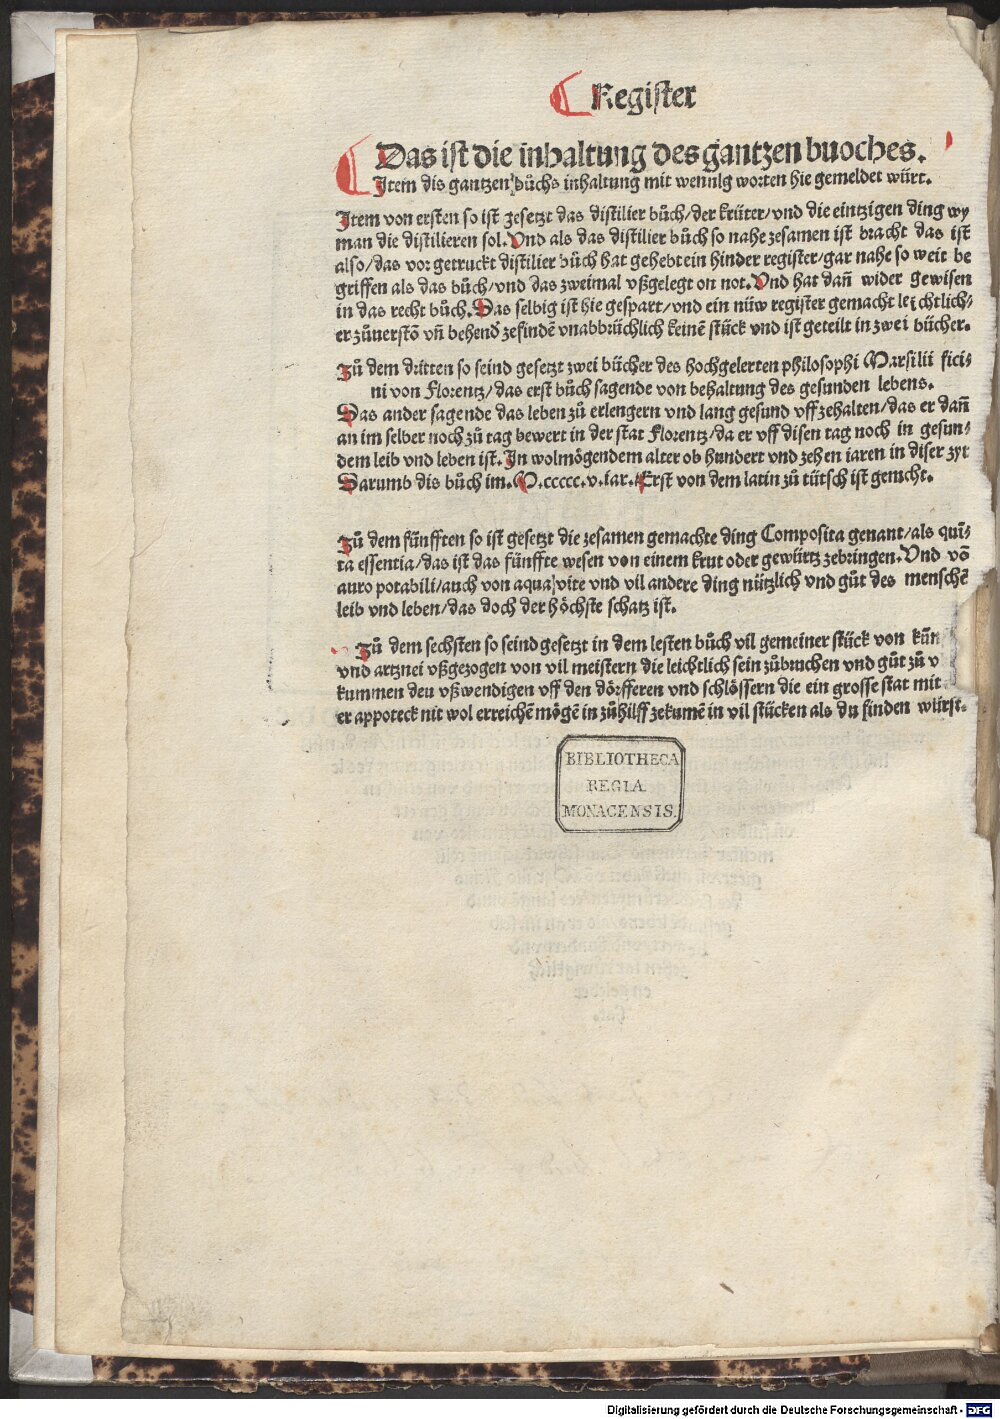 Register
Das ist die inhaltung des gantzen buoches.
Item dis gantzen bůchs inhaltung mit wennig worten hie gemeldet würt.
Item von ersten so ist gesetzt das distilier bůch/der krüter/vnd die eintzigen ding wy
man die distilieren sol. Vnd als das distilier bůch so nahe zesamen ist bracht das ist
also/das vor getruckt distilier bůch hat gehebt ein hinder register/gar nahe so weit be
griffen als das bůch/vnd das zweimal vßgelegt on not. Vnd hat dañ wider gewisen
in das recht bůch. Das selbig ist hie gespart/vnd ein nüw register gemacht leichtlich⸗
er zůuerstõ vñ behend zefindẽ vnabbrüchlich keinẽ stück vnd ist geteilt in zwei bücher.
Zů dem dritten so seind gesetzt zwei bücher des hochgelerten philosophi Marsilii fici⸗
ni von Florentz/das erst bůch sagende von behaltung des gesunden lebens.
Das ander sagende das leben zů erlengern vnd lang gesund vff zehalten/das er dañ
an im selber noch zů tag bewert in der stat Florentz/da er vff disen tag noch in gesun⸗
dem leib vnd leben ist. In wolmögendem alter ob hundert vnd zehen iaren in diser zyt
Darumb dis bůch im. M.ccccc.v.iar. Erst von dem latin zů tütsch ist gemcht.
Zů dem fünfften so ist gesetzt die zesamen gemachte ding Composita genant/als quin⸗
ta essentia/das ist das fünffte wesen von einem krut oder gewürtz zebringen. Vnd võ
auro potabili/auch von aqua vite vnd vil andere ding nützlich vnd gůt des menschẽ
leib vnd leben/das doch der höchste schatz ist.
Zů dem sechsten so seind gesetzt in dem lesten bůch vil gemeiner stück von kün
vnd artznei vßgezogen von vil meistern die leichtlich sein zůbruchen vnd gůt zů v
kummen den vßwendigen vff den dörfferen vnd schlössern die ein grosse stat mit
er appoteck nit wol erreichẽ mögẽ in zůhilff zekumẽ in vil stücken als du finden würst.
BIBLIOTHECA
REGIA
MONACENSIS.
Digitalisierung gefördert durch die Deutsche Forschungsgemeinschaft - DFG